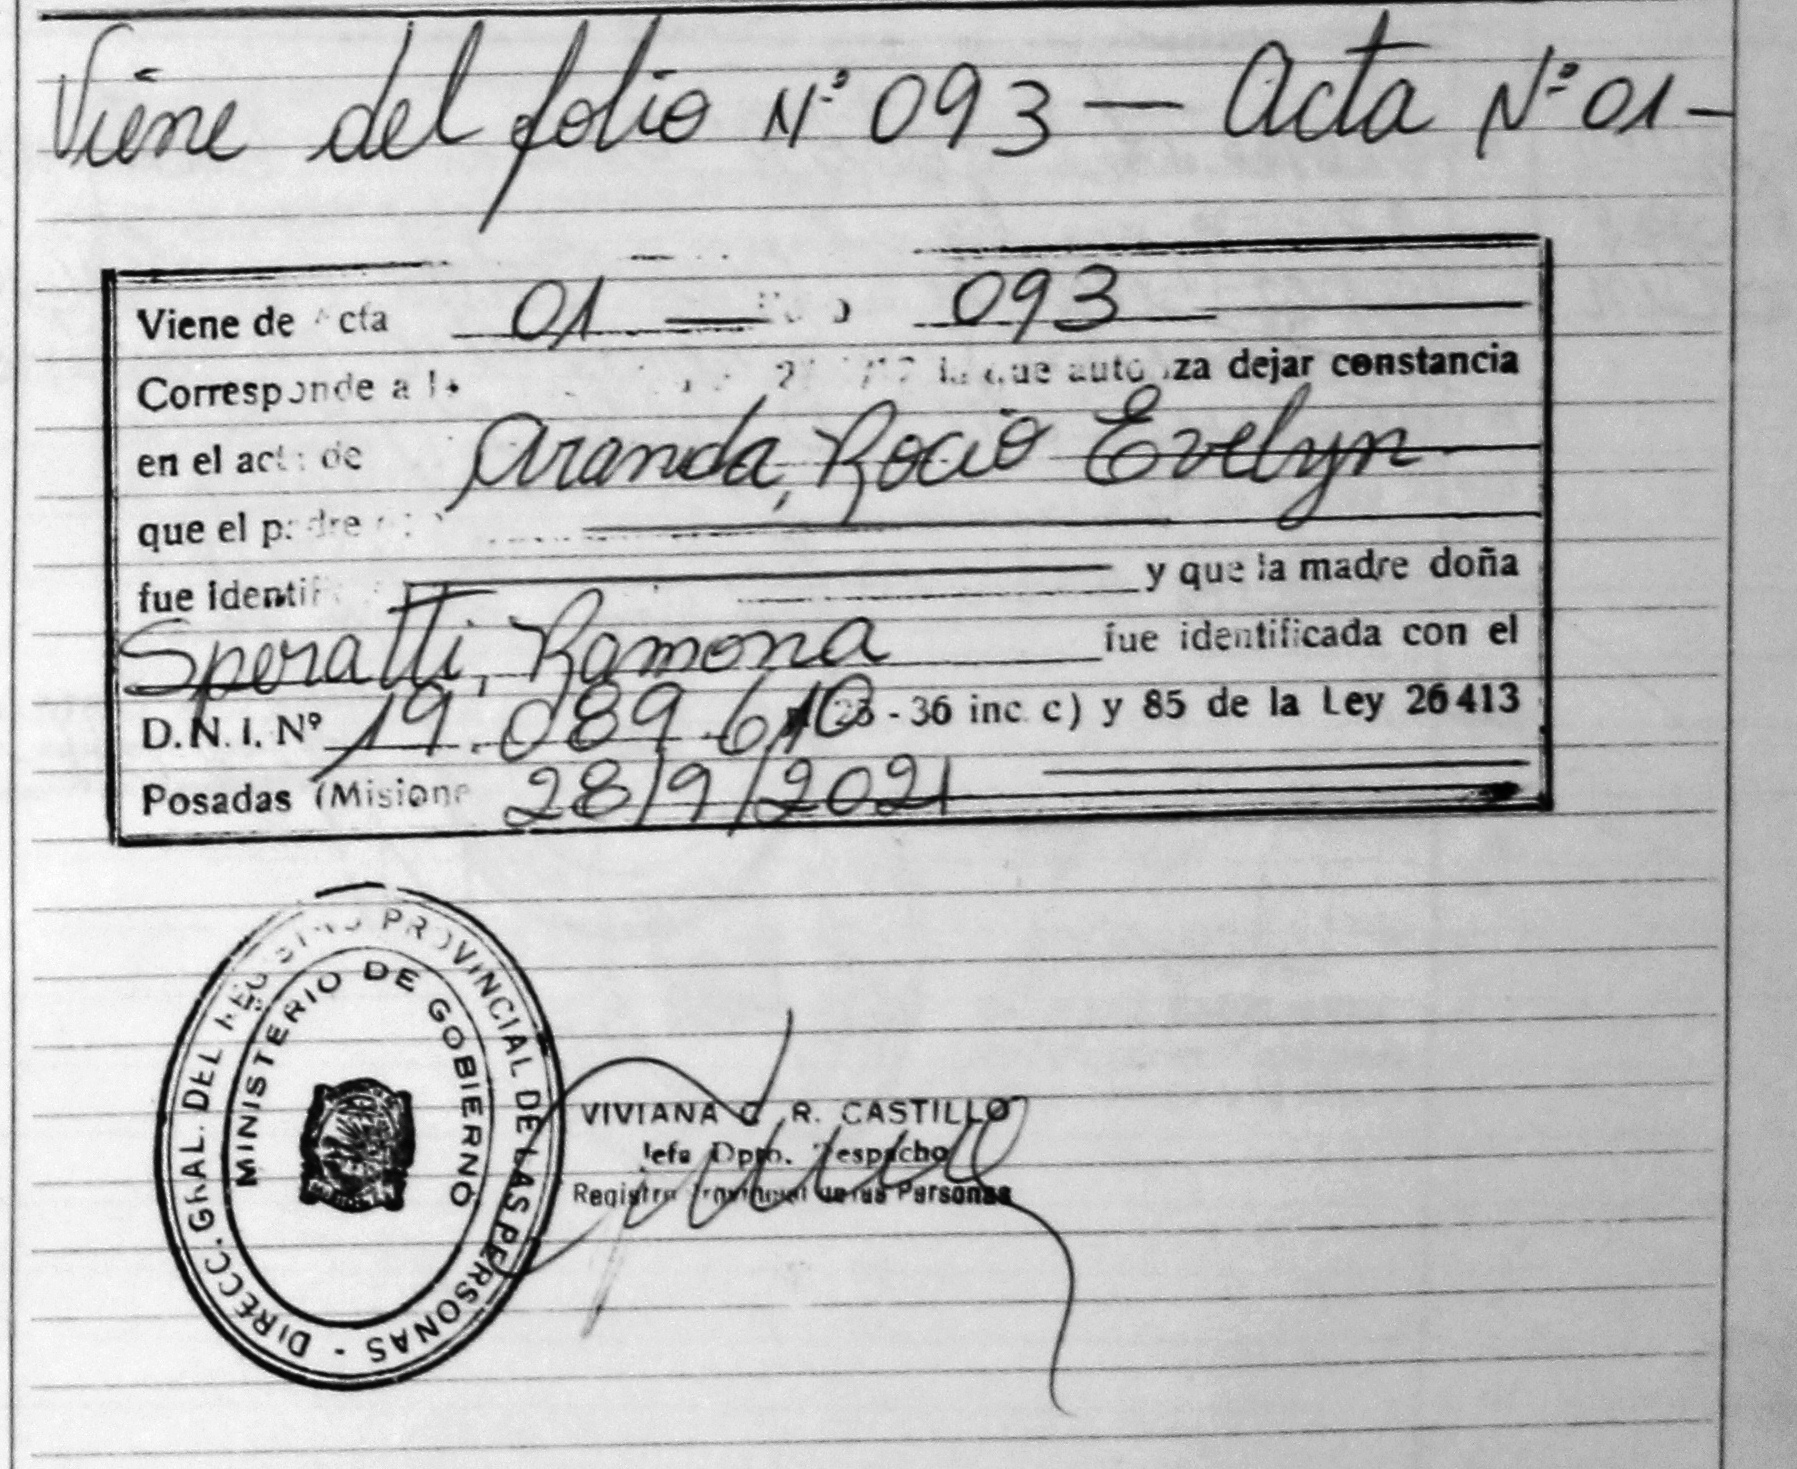 Viene del folio Nº 093 — Acta Nº 01 -
Viene de Acta 01 — 093
Corresponde a la que autoriza dejar constancia
en el acta de Aranda, Rocio Evelyn
que el padre
fue identif y que la madre doña
Speratti, Ramona fue identificada con el
D.N.I. Nº 19.089.610 - 36 inc. c) y 85 de la Ley 26413
Posadas (Misiones 28/9/2021
DIRECC. GRAL. DEL REGISTRO PROVINCIAL DE LAS PERSONAS -
MINISTERIO DE GOBIERNO
VIVIANA C. R. CASTILLO
Jefa Dpto. Despacho
Registro Provincial de las Personas